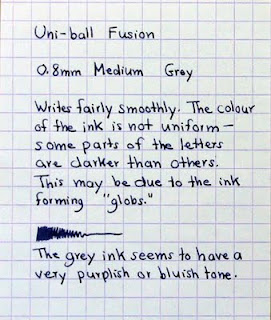 Uni-ball Fusion
0.8mm Medium Grey
Writes fairly smoothly. The colour
of the ink is not uniform—
some parts of the letters
are darker than others.
This may be due to the ink
forming "globs."
The grey ink seems to have a
very purplish or bluish tone.